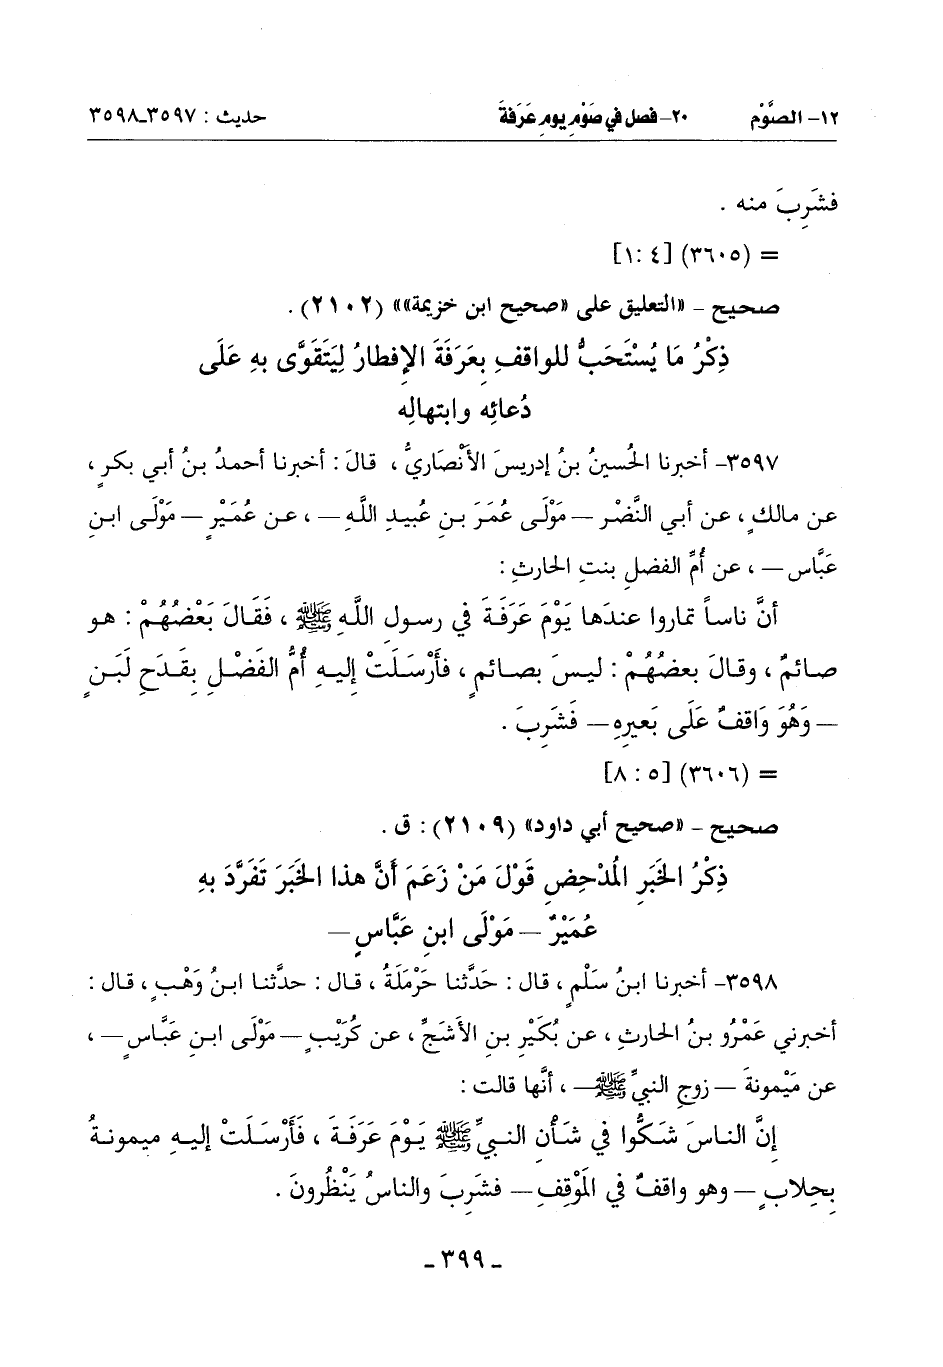 ١٢- الصَّوْم ٢٠- فصل في صَوْمِ يومِ عَرَفَةَ حديث : ٣٥٩٧-٣٥٩٨
فشَرِبَ منه .
= (٣٦٠٥) [٤ :١]
صحيح - «التعليق على «صحيح ابن خزيمة»» (٢١٠٢).
ذِكْرُ مَا يُسْتَحَبُّ للواقفِ بِعَرَفَةَ الإفطارُ لِيَتَقَوَّى بهِ عَلَى
دُعائِه وابتهالِه
٣٥٩٧- أخبرنا الحُسينُ بنُ إدريسَ الأنْصَاريُّ ، قالَ : أخبرنا أحمدُ بنُ أبي بكرٍ ،
عن مالكٍ ، عن أبي النَّضْرِ –مَوْلَى عُمَرَ بنِ عُبيدِ اللَّهِ– ، عن عُمَيْرٍ –مَوْلَى ابنِ
عَبَّاس– ، عن أُمِّ الفضلِ بنتِ الحارثِ :
أنَّ ناساً تماروا عندَها يَوْمَ عَرَفَةَ في رسولِ اللَّهِ ﷺ ، فَقَالَ بَعْضُهُمْ : هو
صائمٌ ، وقالَ بعضُهُمْ : ليسَ بصائمٍ ، فأَرْسَلَتْ إليهِ أُمُّ الفَضْلِ بِقَدَحِ لَبَنٍ
–وَهُوَ وَاقفٌ عَلَى بَعيرِهِ– فَشَرِبَ .
= (٣٦٠٦) [٥ : ٨]
صحيح - «صحيح أبي داود» (٢١٠٩) : ق .
ذِكْرُ الخَبَرِ المُدْحِضِ قَوْلَ مَنْ زَعَمَ أَنَّ هذا الخَبَرَ تَفَرَّدَ بهِ
عُمَيْرٌ –مَوْلَى ابنِ عَبَّاسٍ–
٣٥٩٨- أخبرنا ابنُ سَلْمٍ ، قال : حَدَّثنا حَرْمَلَةُ ، قال : حدَّثنا ابنُ وَهْبٍ ، قال :
أخبرني عَمْرُو بنُ الحارثِ ، عن بُكَيْرِ بنِ الأَشَجِّ ، عن كُرَيْبٍ –مَوْلَى ابنِ عَبَّاسٍ– ،
عن مَيْمونةَ –زوجِ النبيِّ ﷺ– ، أنَّها قالت :
إنَّ الناسَ شَكُّوا في شَأْنِ النبيِّ ﷺ يَوْمَ عَرَفَةَ ، فَأَرْسَلَتْ إليهِ ميمونةُ
بِحِلابٍ –وهو واقفٌ في المَوْقِفِ– فشَرِبَ والناسُ يَنْظُرونَ .
- ٣٩٩ -